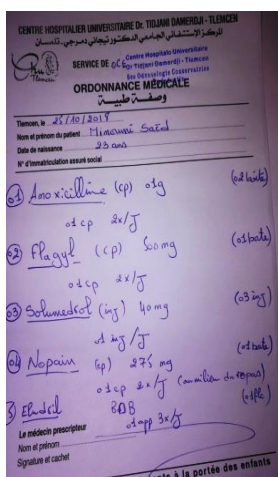 CENTRE HOSPITALIER UNIVERSITAIRE Dr. TIDJANI DAMERDJI - TLEMCEN
المركز الإستشفائي الجامعي الدكتور تيجاني دمرجي - تلمسان
Centre Hospitalo Universitaire
SERVICE DE OCE Dr Tidjani Damerdji - Tlemcen
ORDONNANCE MEDICALE
وصفة طبية
Tlemcen, le 25/10/2019
Nom et prénom du patient Mimouni Saïd
Date de naissance 23 ans
N° d'immatriculation assuré social
01 Amoxicilline (cp) 01g (02 boite)
01 cp 2x/J
02 Flagyl (cp) 500 mg (01 boite)
01 cp 2x/J
03 Solumedrol (inj) 40 mg (03 inj)
01 inj/J
04 Nopain (cp) 275 mg (01 boite)
01 cp 2x/J (au milieu du repas)
Eludril BDB (01 flc)
01 app 3x/J
Le médecin prescripteur
Nom et prénom
Signature et cachet
à la portée des enfants